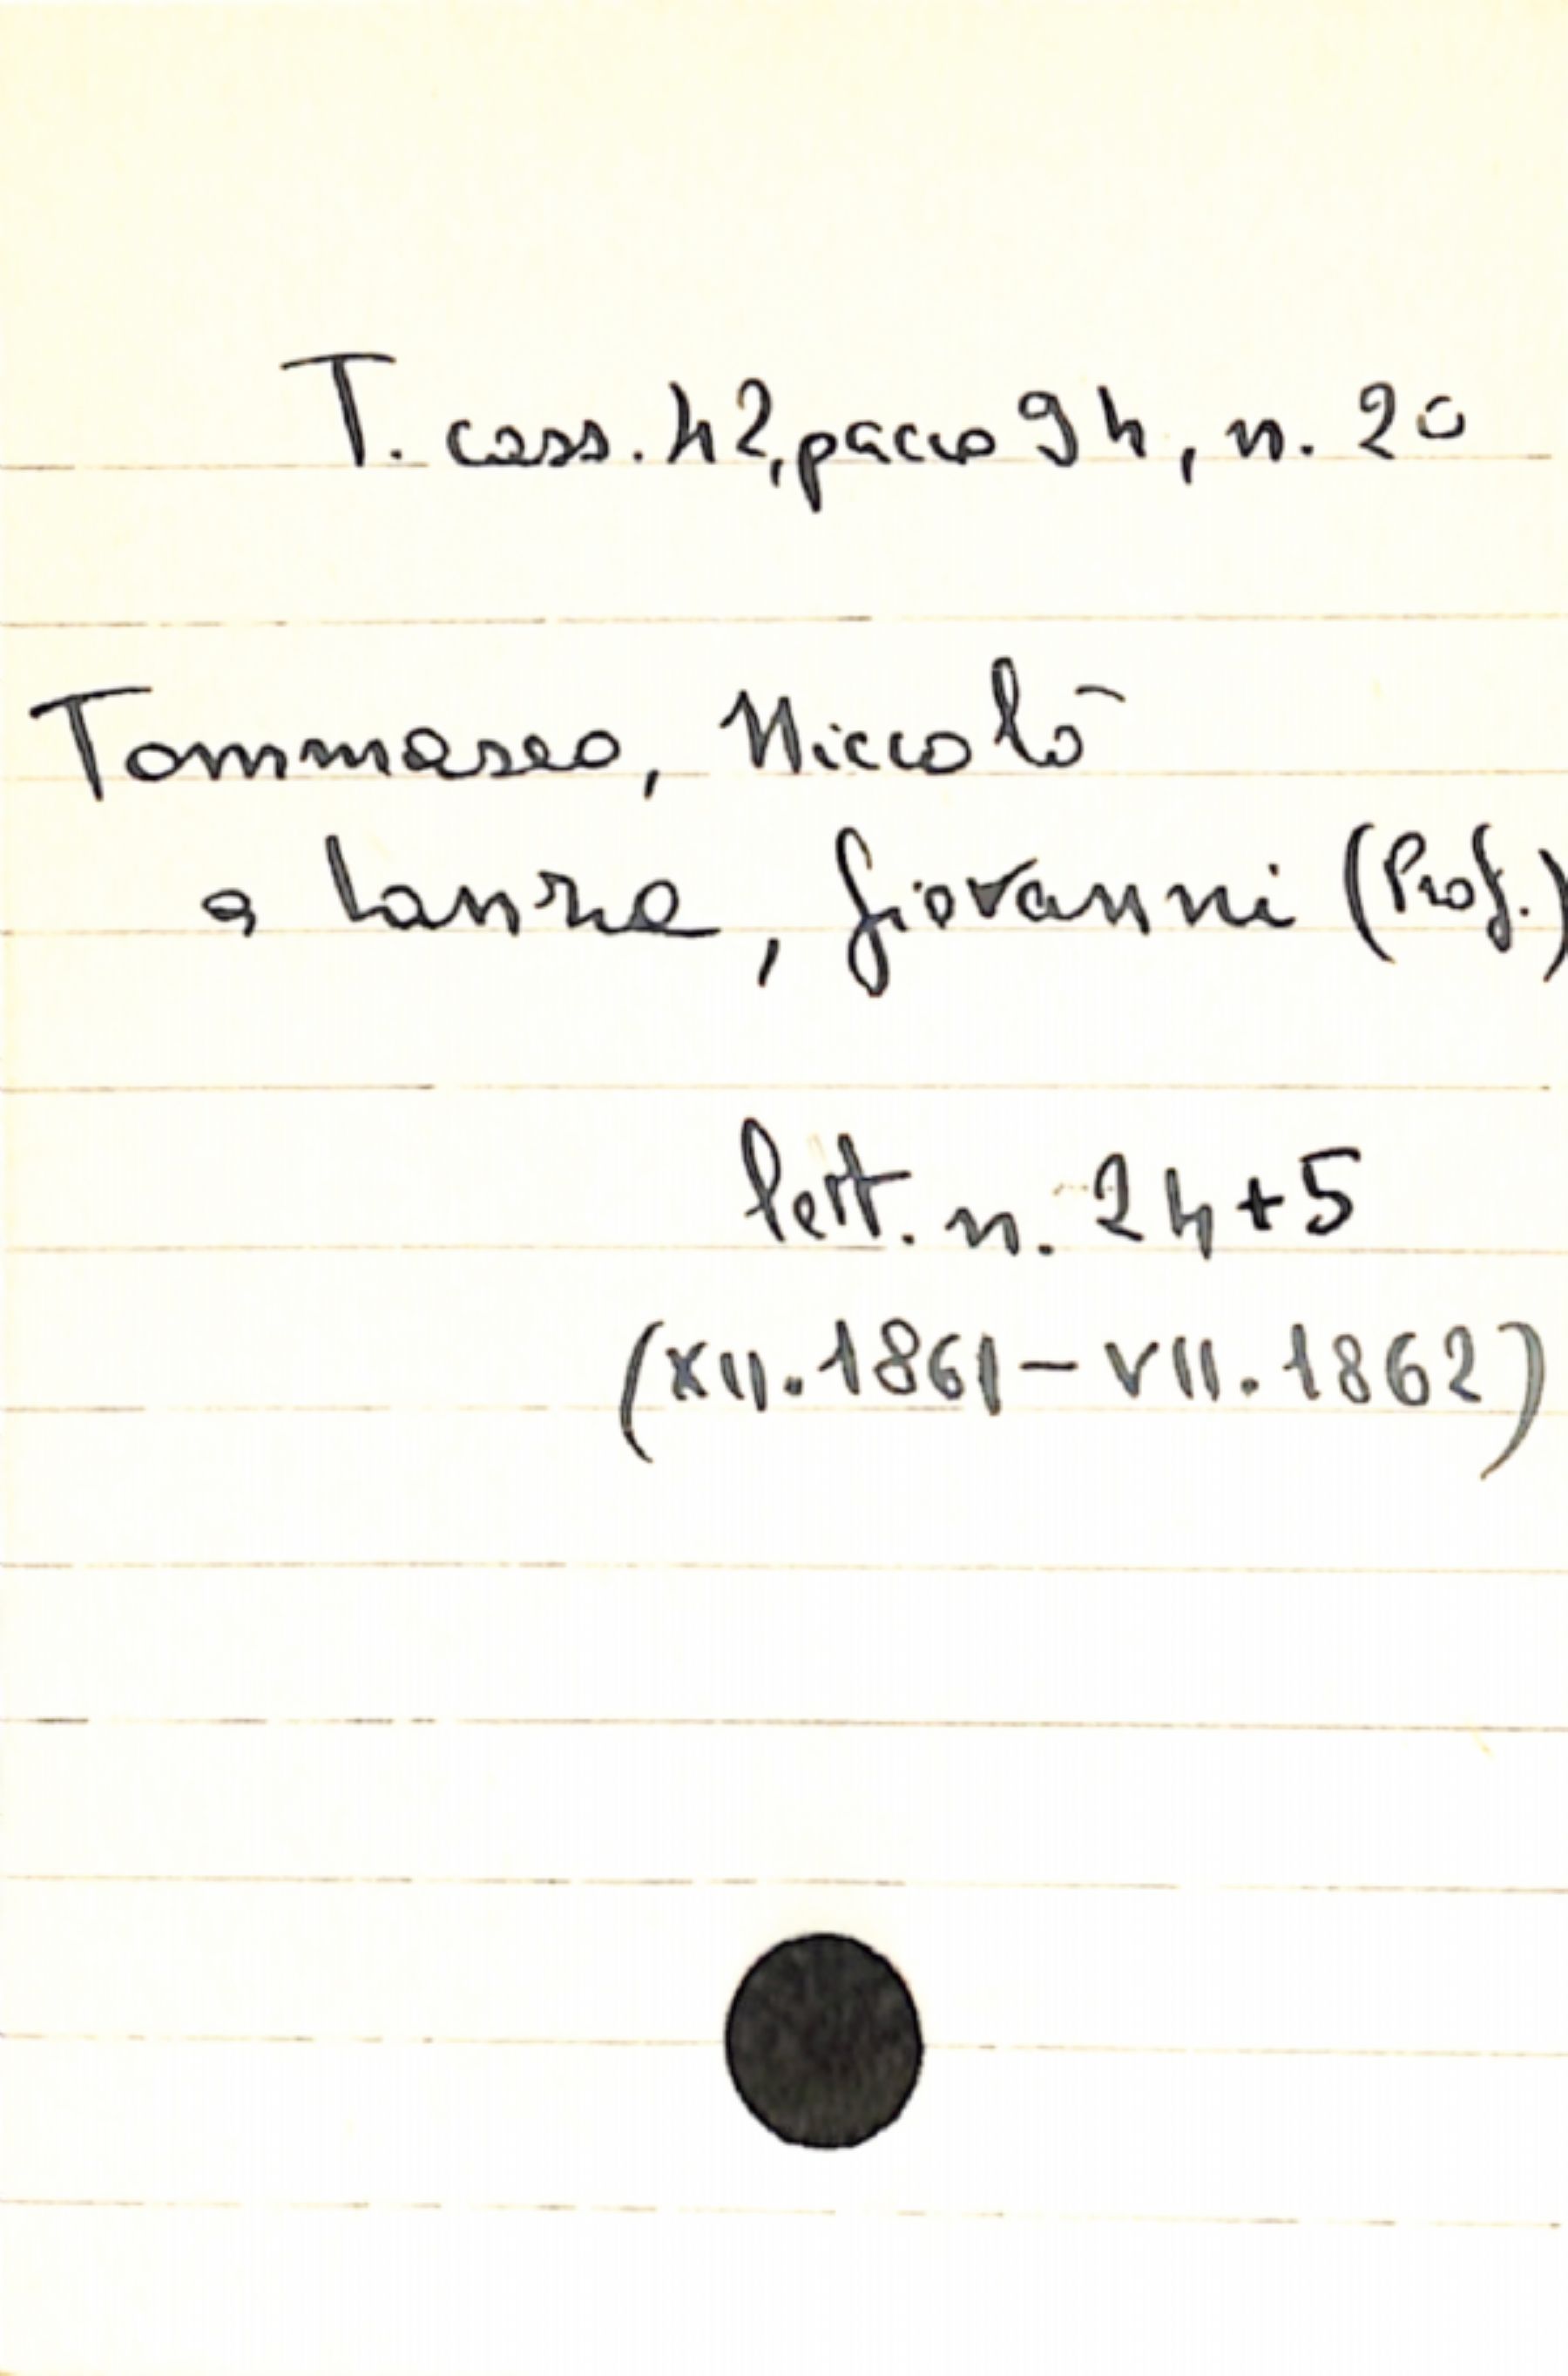 T. cass. 42, pacco 94, n. 20
Tommaseo, Niccolò
a Lanza, Giovanni (Prof.)
lett. n. 24+5
(XII.1861-VII.1862)